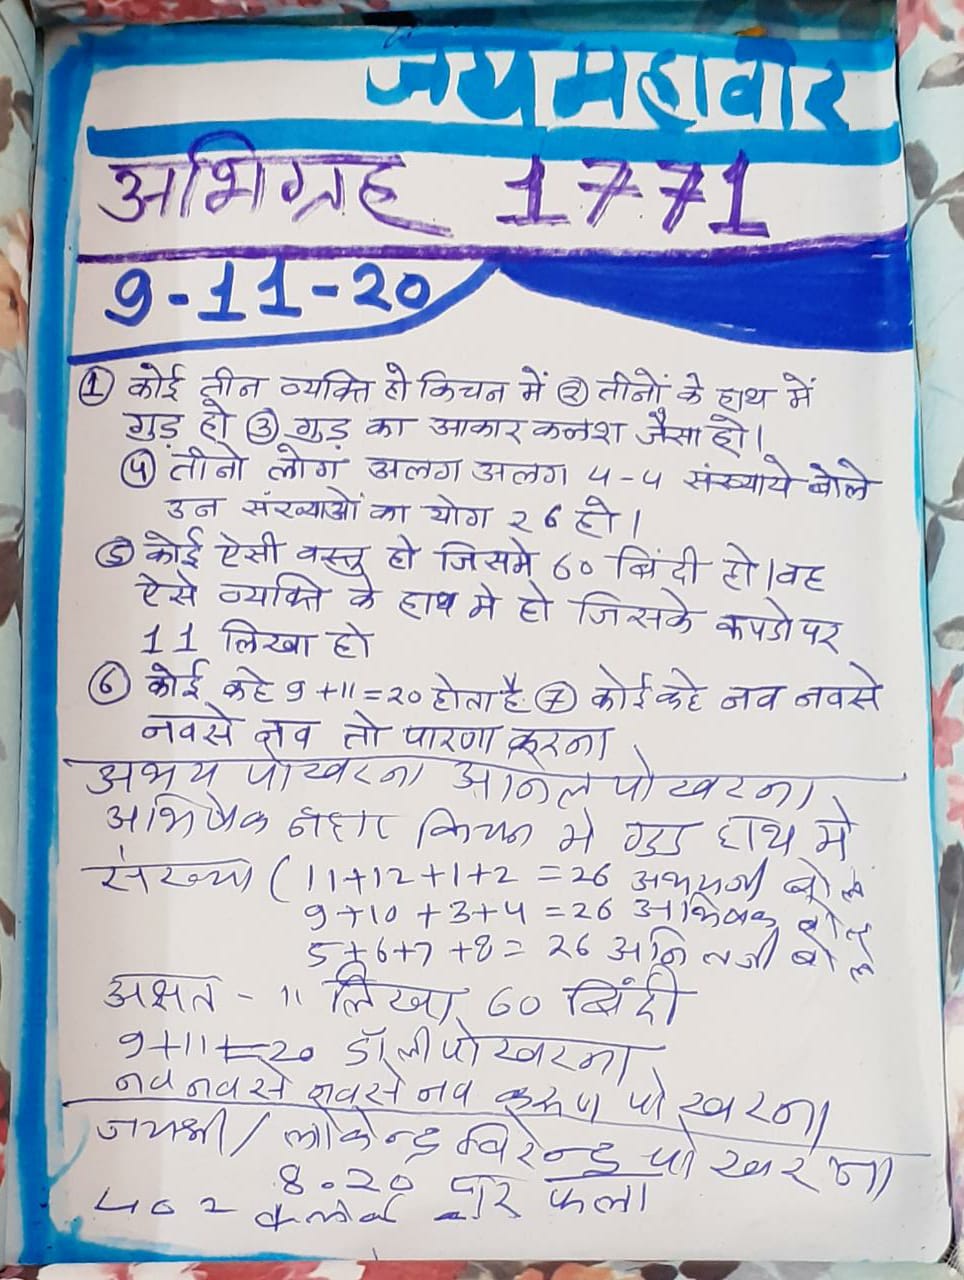 जय महावीर
अभिग्रह 1771
9-11-20
① कोई तीन व्यक्ति हो किचन में ② तीनों के हाथ में
गुड़ हो ③ गुड़ का आकार कलश जैसा हो।
④ तीनो लोग अलग अलग 4-4 संख्याये बोले
उन संख्याओं का योग 26 हो।
⑤ कोई ऐसी वस्तु हो जिसमे 60 बिंदी हो। वह
ऐसे व्यक्ति के हाथ मे हो जिसके कपडो पर
11 लिखा हो
⑥ कोई कहे 9+11=20 होता है ⑦ कोई कहे नव नवसे
नवसे नव तो पारणा करना
अभय पोखरना अनिल पोखरना
अभिषेक नहार किचन मे गुड हाथ मे
संख्या (11+12+1+2=26 अभयजी बोले
9+10+3+4=26 अभिषेक बोले
5+6+7+8=26 अनिलजी बोले
अक्षत - 11 लिखा 60 बिंदी
9+11=20 डॉली पोखरना
नव नवसे नवसे नव करूण पोखरना
जयश्री/ लोकेन्द्र विरेन्द्र पोखरना
8.20 पर फला